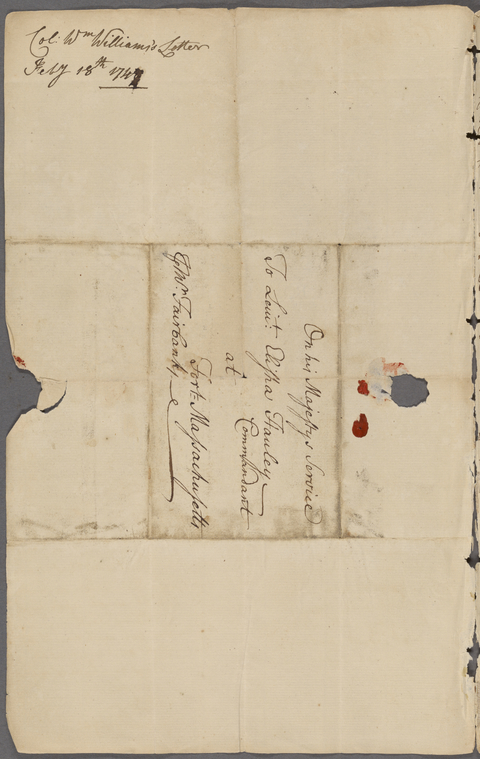 Col: Wm Williams's Letter
Feby 18th 174
On his Majestys Service
To Leiut. Elisha Hauley
Commandant
at
Fort-Massachusetts
Mr. Fairbank